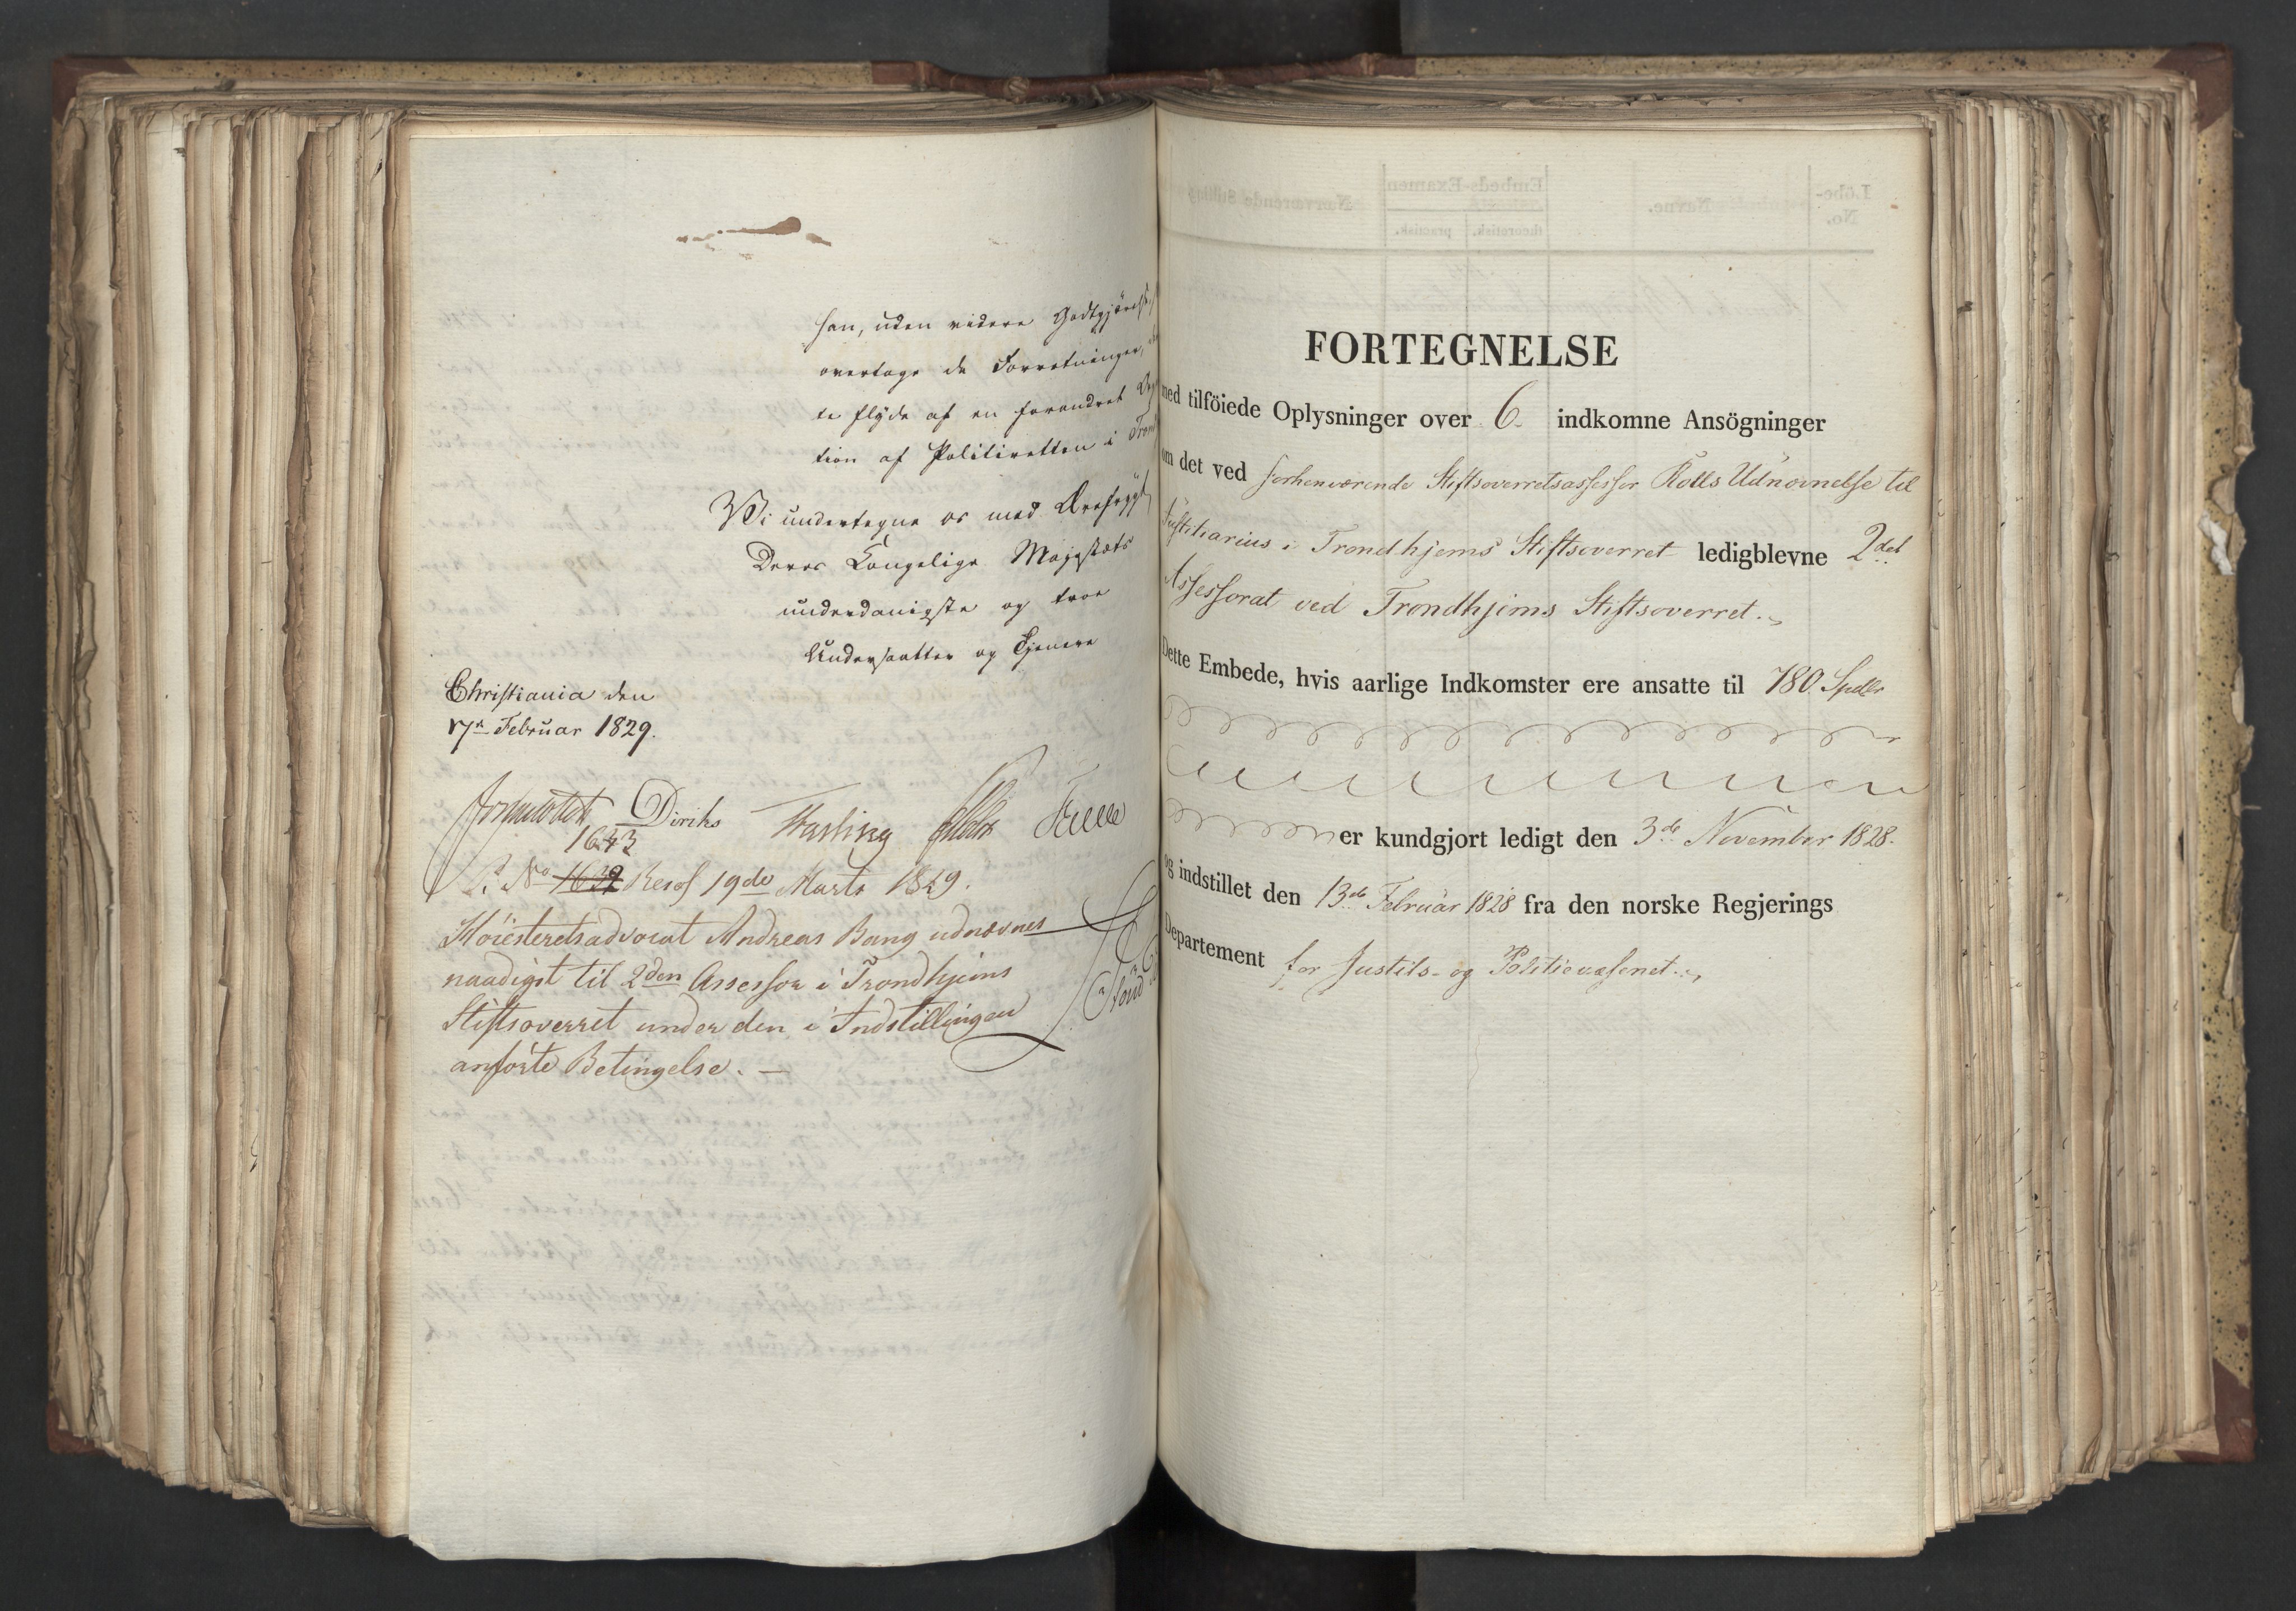 han, uden videre Godtgjörelse
overtage de Forretninger,
te flyde af en forandret
tion af Politiretten i Trond
Vi undertegne os med Ærefrygt
Deres Kongelige Majestæts
underdanigste og troe
Undersaatter og Tjenere
Christiania den
17de Februar 1829.
Diriks
1643
P. No 1639 Resol 19de Marts 1829.
Höiesteretsadvocat Andreas Bang udnævnes
naadigst til 2den Assessor i Trondhjems
Stiftsoverret under den i Indstillingen
anförte Betingelse. —
FORTEGNELSE
med tilföiede Oplysninger over 6 indkomne Ansögninger
om det ved forhenværende Stiftsoverretsassessor Rolls Udnævnelse til
Justitiarius i Trondhjems Stiftsoverret ledigblevne 2det
Assessorat ved Trondhjems Stiftsoverret.
Dette Embede, hvis aarlige Indkomster ere ansatte til 780 Spdlr
er kundgjort ledigt den 3de November 1828.
og indstillet den 13de Februar 1828 fra den norske Regjerings
Departement for Justits- og Politievæsenet.